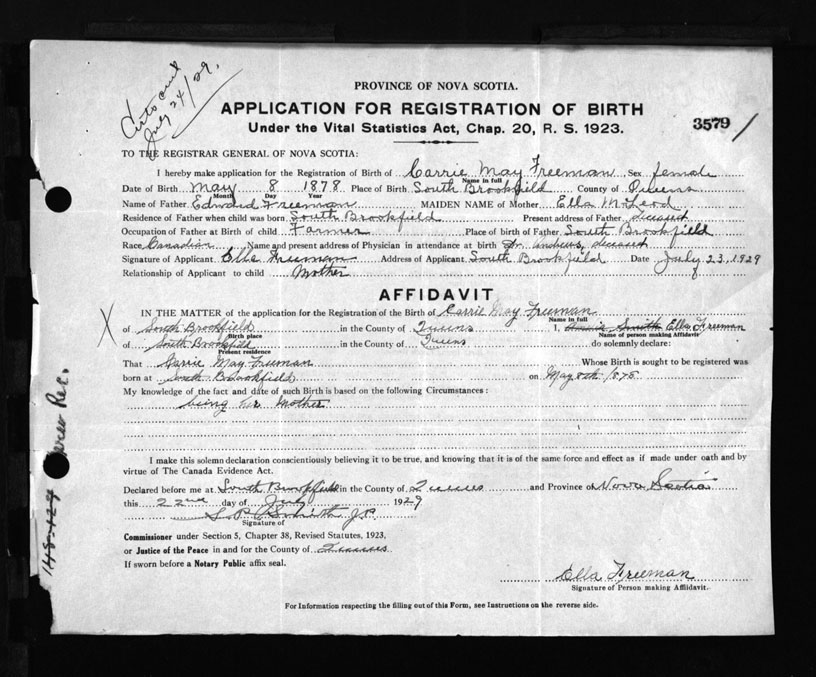 Certs sent
July 24/29.
PROVINCE OF NOVA SCOTIA.
APPLICATION FOR REGISTRATION OF BIRTH
Under the Vital Statistics Act, Chap. 20, R. S. 1923.
3579 /
TO THE REGISTRAR GENERAL OF NOVA SCOTIA:
I hereby make application for the Registration of Birth of Carrie May Freeman Sex female
Name in full
Date of Birth May 8 1878 Place of Birth South Brookfield County of Queens
Month Day Year
Name of Father Edward Freeman MAIDEN NAME of Mother Ella McLeod
Residence of Father when child was born South Brookfield Present address of Father deceased
Occupation of Father at Birth of child Farmer Place of birth of Father South Brookfield
Race Canadian Name and present address of Physician in attendance at birth Dr. Andrews, deceased
Signature of Applicant Ella Freeman Address of Applicant South Brookfield Date July 23, 1929
Relationship of Applicant to child Mother
AFFIDAVIT
X IN THE MATTER of the application for the Registration of the Birth of Carrie May Freeman
Name in full
of South Brookfield in the County of Queens I, Smith Ella Freeman
Birth place Name of person making Affidavit
of South Brookfield in the County of Queens do solemnly declare:
Present residence
That Carrie May Freeman Whose Birth is sought to be registered was
born at South Brookfield on May 8th 1878
My knowledge of the fact and date of such Birth is based on the following Circumstances:
being her Mother
I make this solemn declaration conscientiously believing it to be true, and knowing that it is of the same force and effect as if made under oath and by
virtue of The Canada Evidence Act.
Declared before me at South Brookfield in the County of Queens and Province of Nova Scotia
this 22nd day of July 1929
Smith J.P.
Signature of
Commissioner under Section 5, Chapter 38, Revised Statutes, 1923,
or Justice of the Peace in and for the County of Queens
If sworn before a Notary Public affix seal.
Ella Freeman
Signature of Person making Affidavit.
For Information respecting the filling out of this Form, see Instructions on the reverse side.